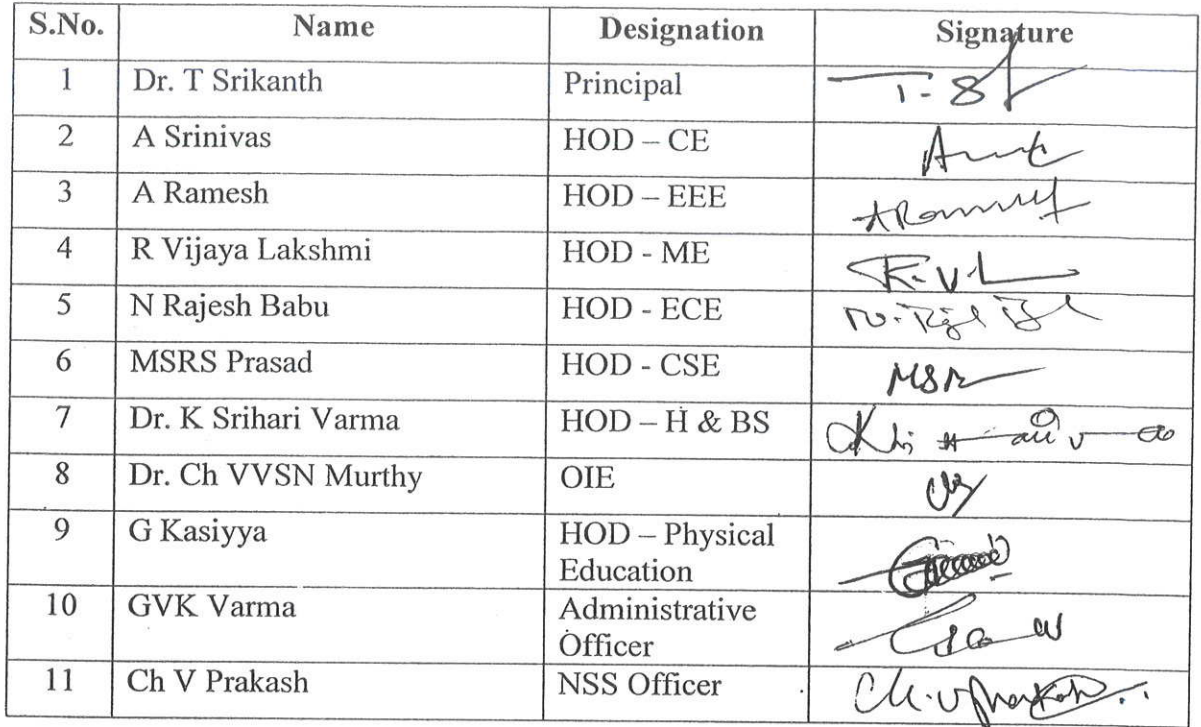 S.No. Name Designation Signature
1 Dr. T Srikanth Principal T. S
2 A Srinivas HOD – CE
3 A Ramesh HOD – EEE ARamesh
4 R Vijaya Lakshmi HOD - ME R.V.L
5 N Rajesh Babu HOD - ECE
6 MSRS Prasad HOD - CSE MSR
7 Dr. K Srihari Varma HOD – H & BS
8 Dr. Ch VVSN Murthy OIE
9 G Kasiyya HOD – Physical
Education
10 GVK Varma Administrative
Officer
11 Ch V Prakash NSS Officer Ch.V Prakash